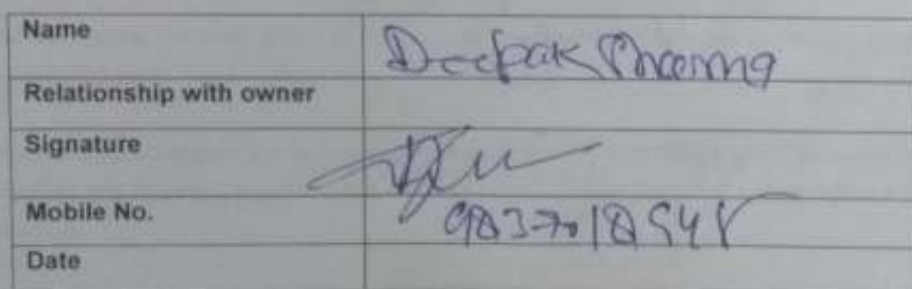 Name Deepak Sharma
Relationship with owner
Signature
Mobile No.
Date